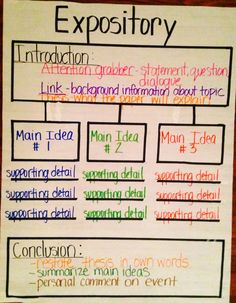 Expository
Introduction:
Attention grabber - statement, question,
dialogue
Link - background information about topic
Thesis - what the paper will explain!
Main Idea
# 1
Main Idea
# 2
Main Idea
# 3
supporting detail
supporting detail
supporting detail
supporting detail
supporting detail
supporting detail
supporting detail
supporting detail
supporting detail
Conclusion:
-restate thesis in own words
-summarize main ideas
-personal comment on event